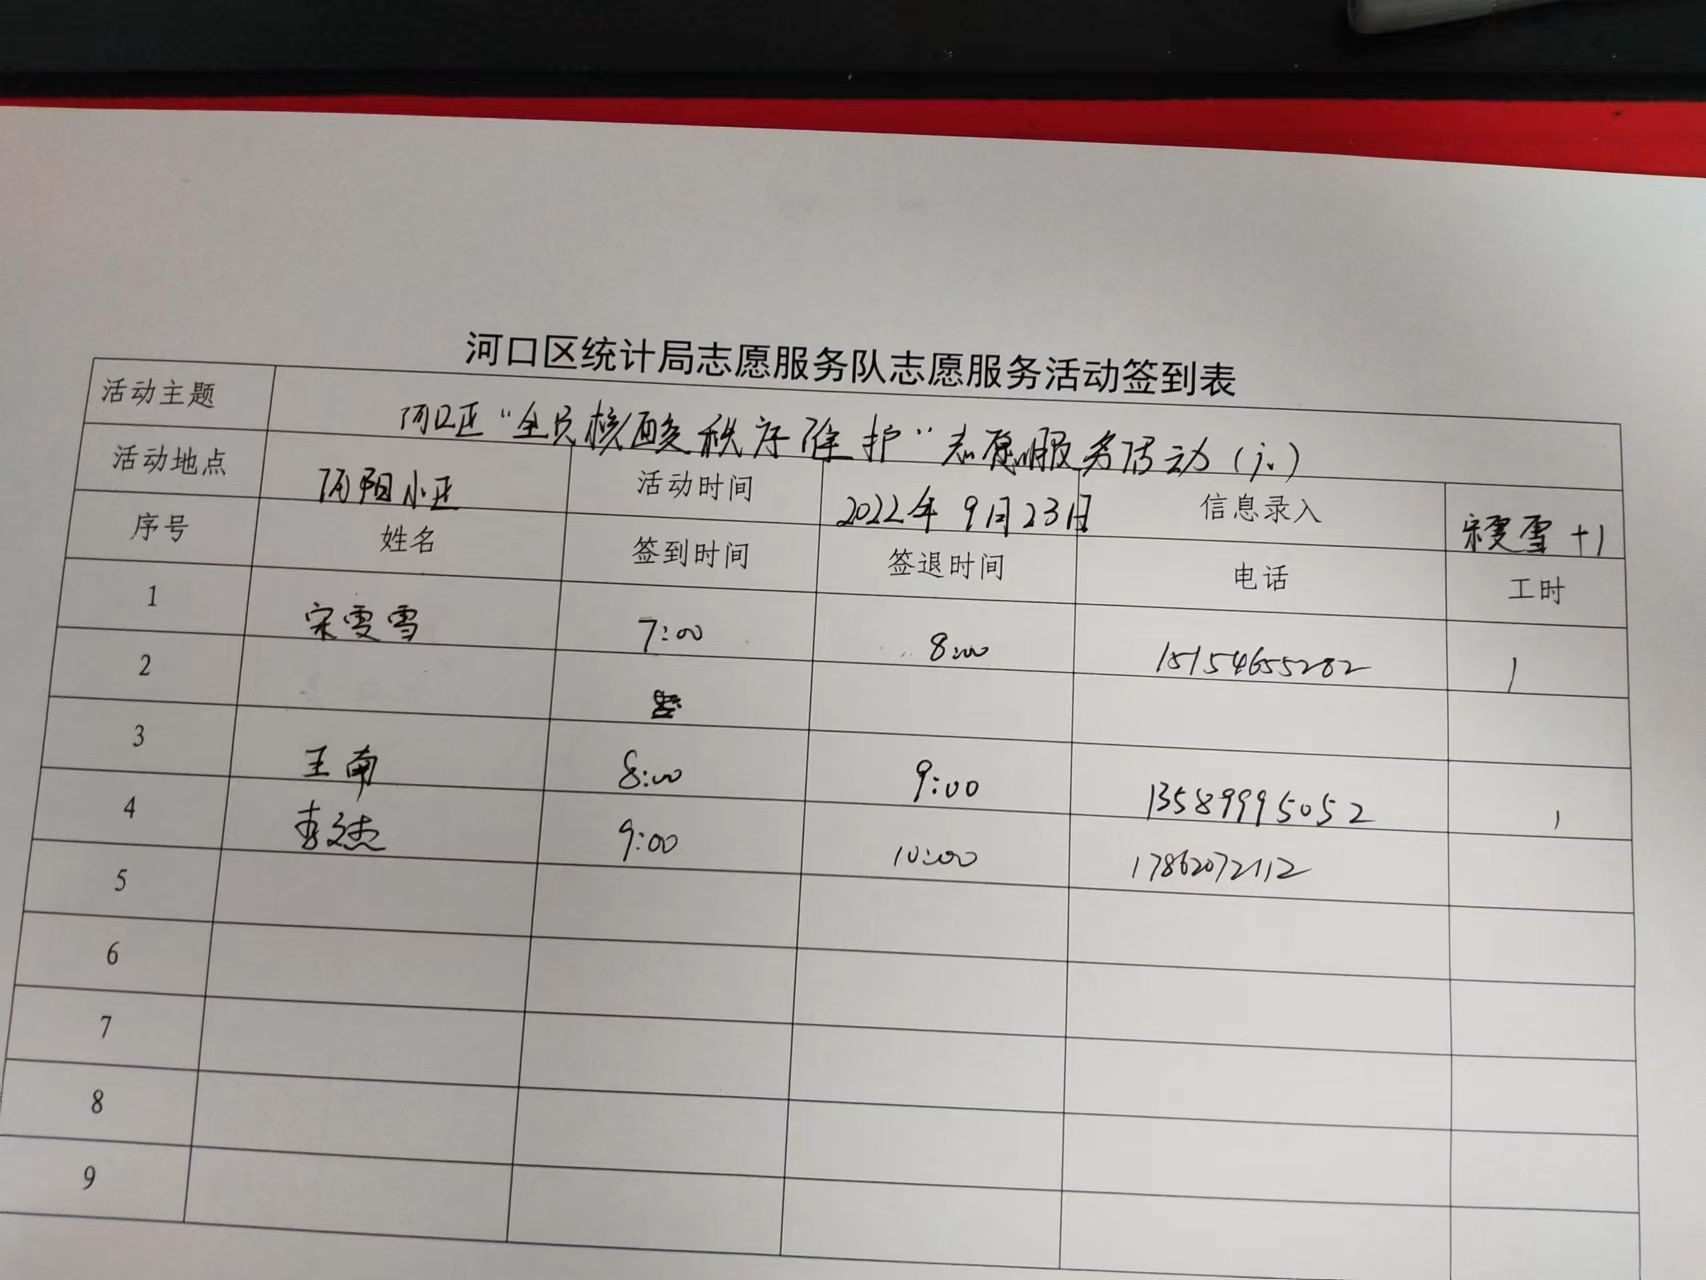 河口区统计局志愿服务队志愿服务活动签到表
活动主题 河口区“全员核酸秩序维护”志愿服务活动（六）
活动地点 河阳小区 活动时间 2022年9月23日 信息录入 宋雯雪 +1
序号 姓名 签到时间 签退时间 电话 工时
1 宋雯雪 7:00 8:00 15154655282 1
2
3 王南 8:00 9:00 13589995052 1
4 李文杰 9:00 10:00 17862072112
5
6
7
8
9